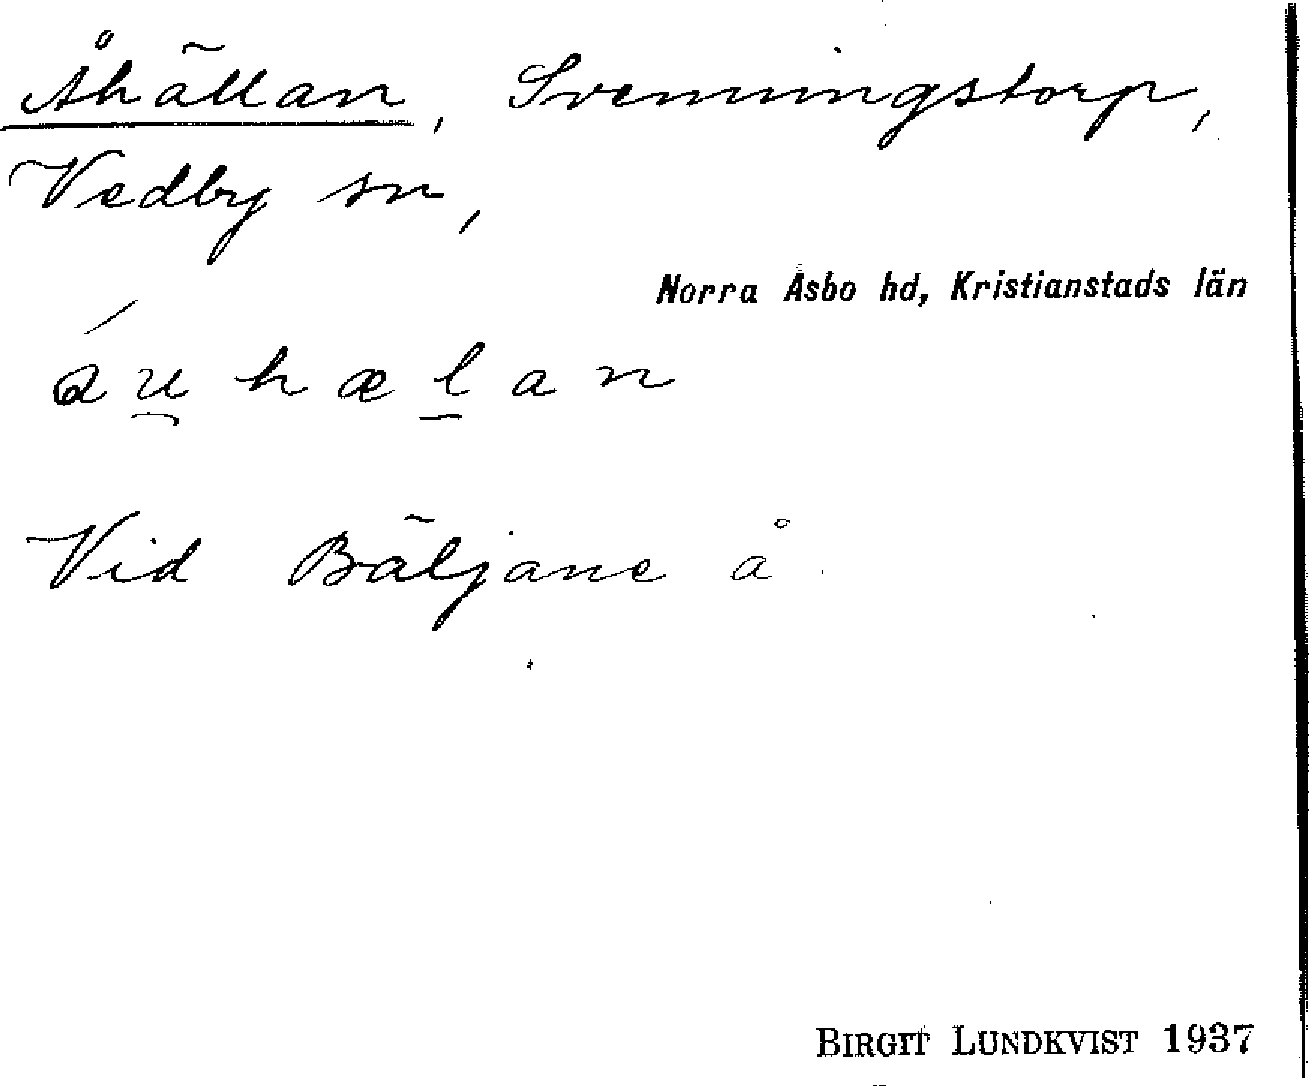 Åhällan, Svenningstorp,
Vedby sn,
Norra Åsbo hd, Kristianstads län
áu̯ hæl̲an
Vid Bäljane å
BIRGIT LUNDKVIST 1937